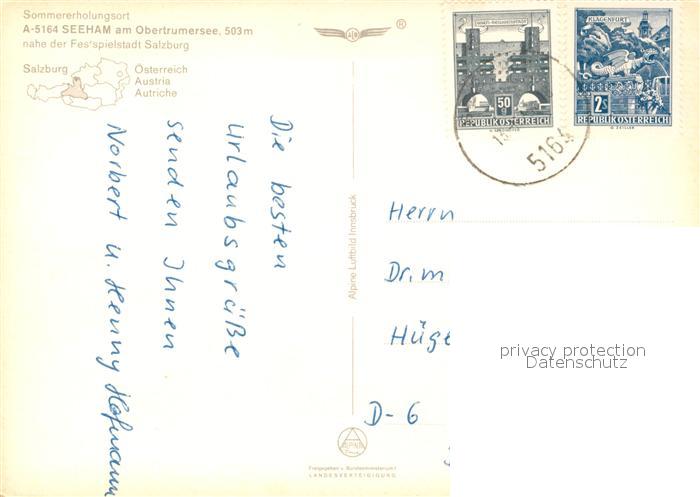 Sommererholungsort
A-5164 SEEHAM am Obertrumersee, 503 m
nahe der Festspielstadt Salzburg
Salzburg
Österreich
Austria
Autriche
Die besten
Urlaubsgrüße
senden Ihnen
Norbert u. Henny Hofmann
Alpine Luftbild Innsbruck
50
REPUBLIK ÖSTERREICH
KLAGENFURT
2S
REPUBLIK ÖSTERREICH
5164
Herrn
Dr. m
Hüge
D-6
privacy protection
Datenschutz
Freigegeben v. Bundesministerium f.
LANDESVERTEIDIGUNG